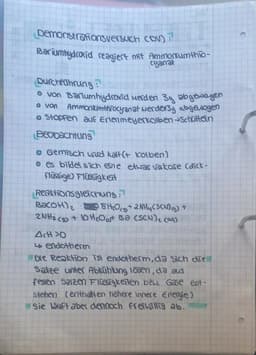 Demonstrationsversuch (CSV):
Bariumhydroxid reagiert mit Ammoniumthio-
cyanat
Durchführung:
o von Bariumhydroxid werden 3g abgewogen
o von Ammoniumthiocyanat werden 3g abgewogen
o Stopfen auf Erlenmeyerkolben → Schütteln
Beobachtung
o Gemisch wird kalt (+ Kolben)
o es bildet sich eine etwas viskose (dick-
flüssige) Flüssigkeit
Reaktionsgleichung:
Ba(OH)₂ 8H₂O(s) + 2NH₄(SCN)(s) →
2NH₃(g) + 10H₂O(l) + Ba(SCN)₂
ΔrH > 0
↳ endotherm
Die Reaktion ist endotherm, da sich die
Salze unter Abkühlung lösen, da aus
festen Salzen Flüssigkeiten bzw. Gase ent-
stehen (enthalten höhere innere Energie)
Sie läuft aber dennoch freiwillig ab.